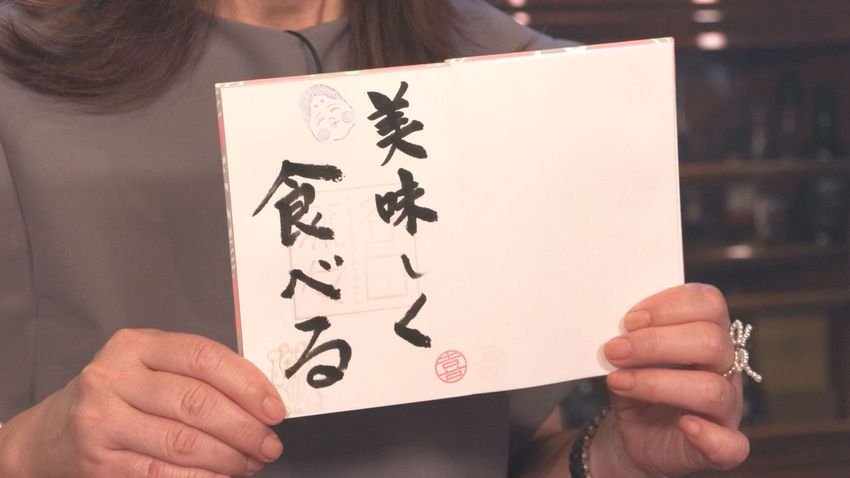 美味しく
食べる
喜